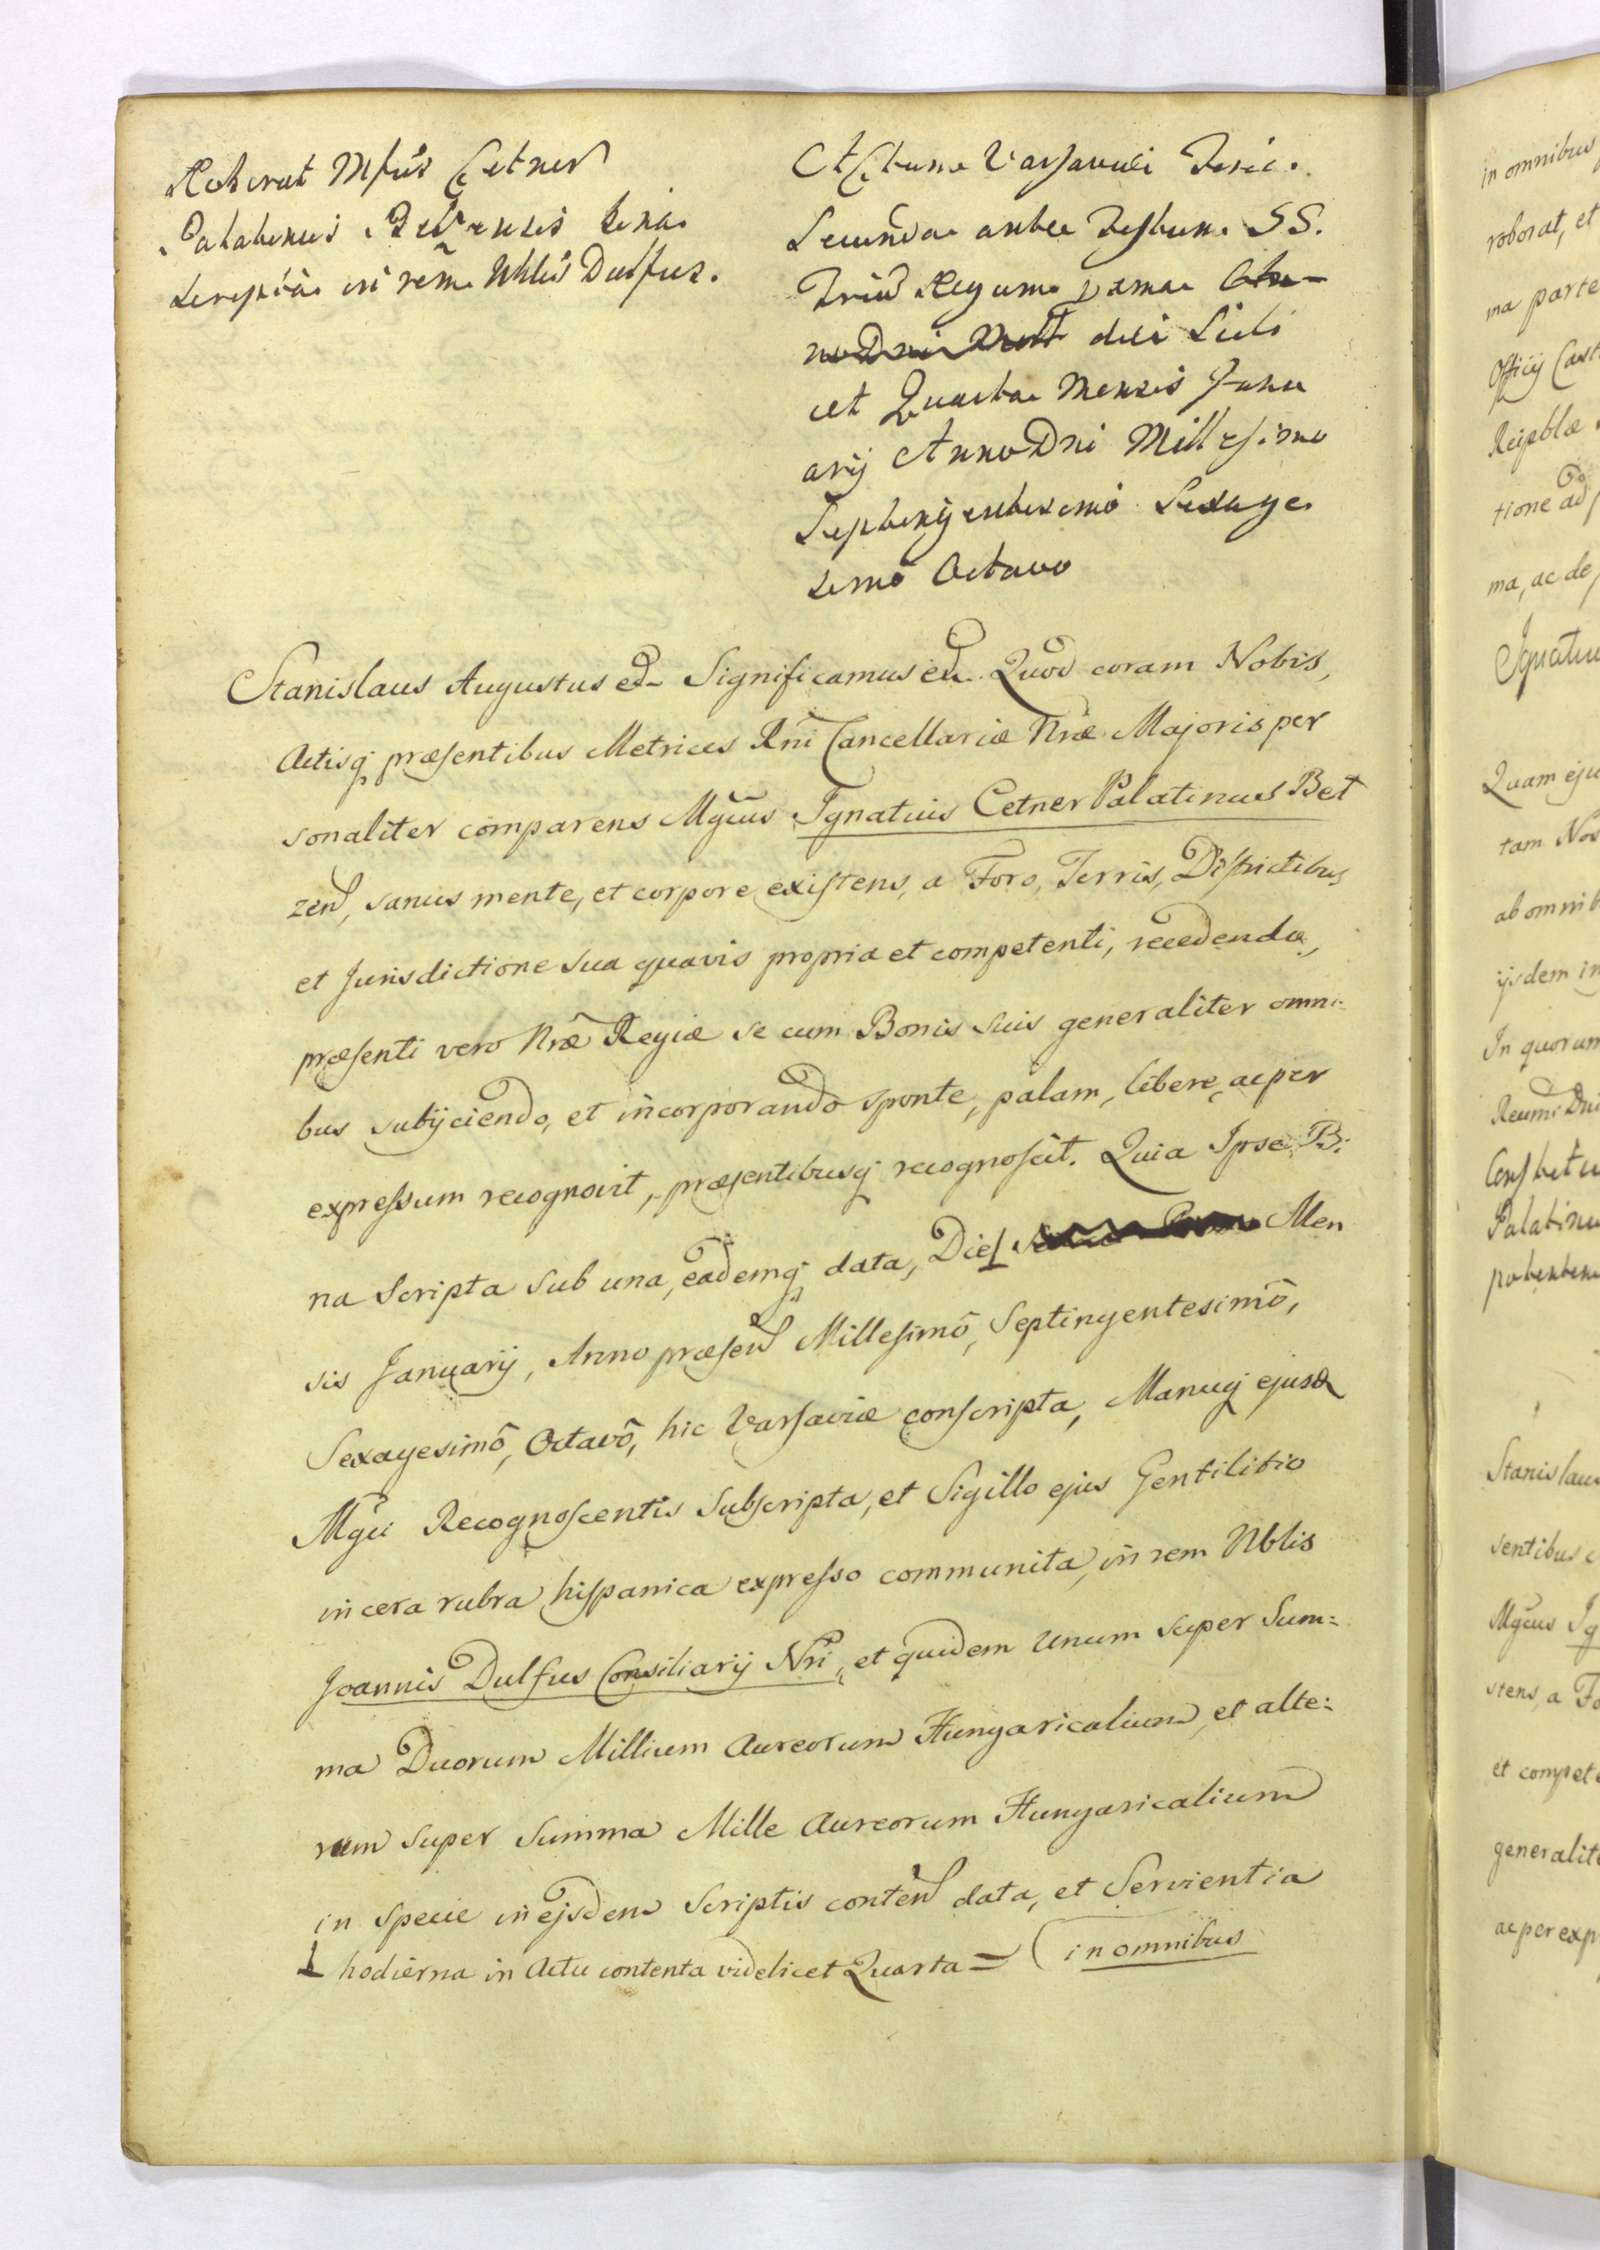 Roborat Mfus Cetner
Palatinus Belzensis bina
Scripta in rem Nblis Dulfus.
Actum Varsaviæ Feria
Secunda ante Festum SS.
Trium Regum prima
die Scili
cet Quarta Mensis Janu
arij Anno Dni Millesimo
Septingentesimo Sexage
simo Octavo
Stanislaus Augustus etc Significamus etc. Quod coram Nobis,
Actisq præsentibus Metrices Rni Cancellariæ Nræ Majoris per
sonaliter comparens Mgcus Ignatius Cetner Palatinus Bet
zen, sanus mente, et corpore existens, a Foro, Terris, Districtibus
et Jurisdictione sua quavis propria et competenti, recedendo,
præsenti vero Nræ Regiæ se cum Bonis suis generaliter omni-
bus subijciendo, et incorporando sponte, palam, libere, ac per
expressum recognovit, præsentibusq recognoscit. Quia Ipse Bi:
na Scripta sub una, eademq data, Die Men
sis Januarij, Anno præsen Millesimo, Septingentesimo,
Sexagesimo, Octavo, hic Varsaviæ conscripta, Manuq ejusd
Mgci Recognoscentis Subscripta, et Sigillo ejus Gentilitio
in cera rubra hispanica expresso communita, in rem Nblis
Joannis Dulfus Consiliarij Nri, et quidem Unum super Sum:
ma Duorum Millium Aureorum Hungaricalium, et alte:
rum super Summa Mille Aureorum Hungaricalium
in specie in ejsdem Scriptis conten data, et Servientia
hodierna in Actu contenta videlicet Quarta = (in omnibus
in omnibus
roborat, et
ma parte
Officij Cast
Reipblæ
tione ad
ma, ac de
Ignatiu
Quam eju
tam Nos
ab omnib
ijsdem in
In quorum
Reumi Dni
Palatinu
Stanislaus
sentibus
Mgcus Ig
stens, a Fo
et compete
generalite
ac per exp